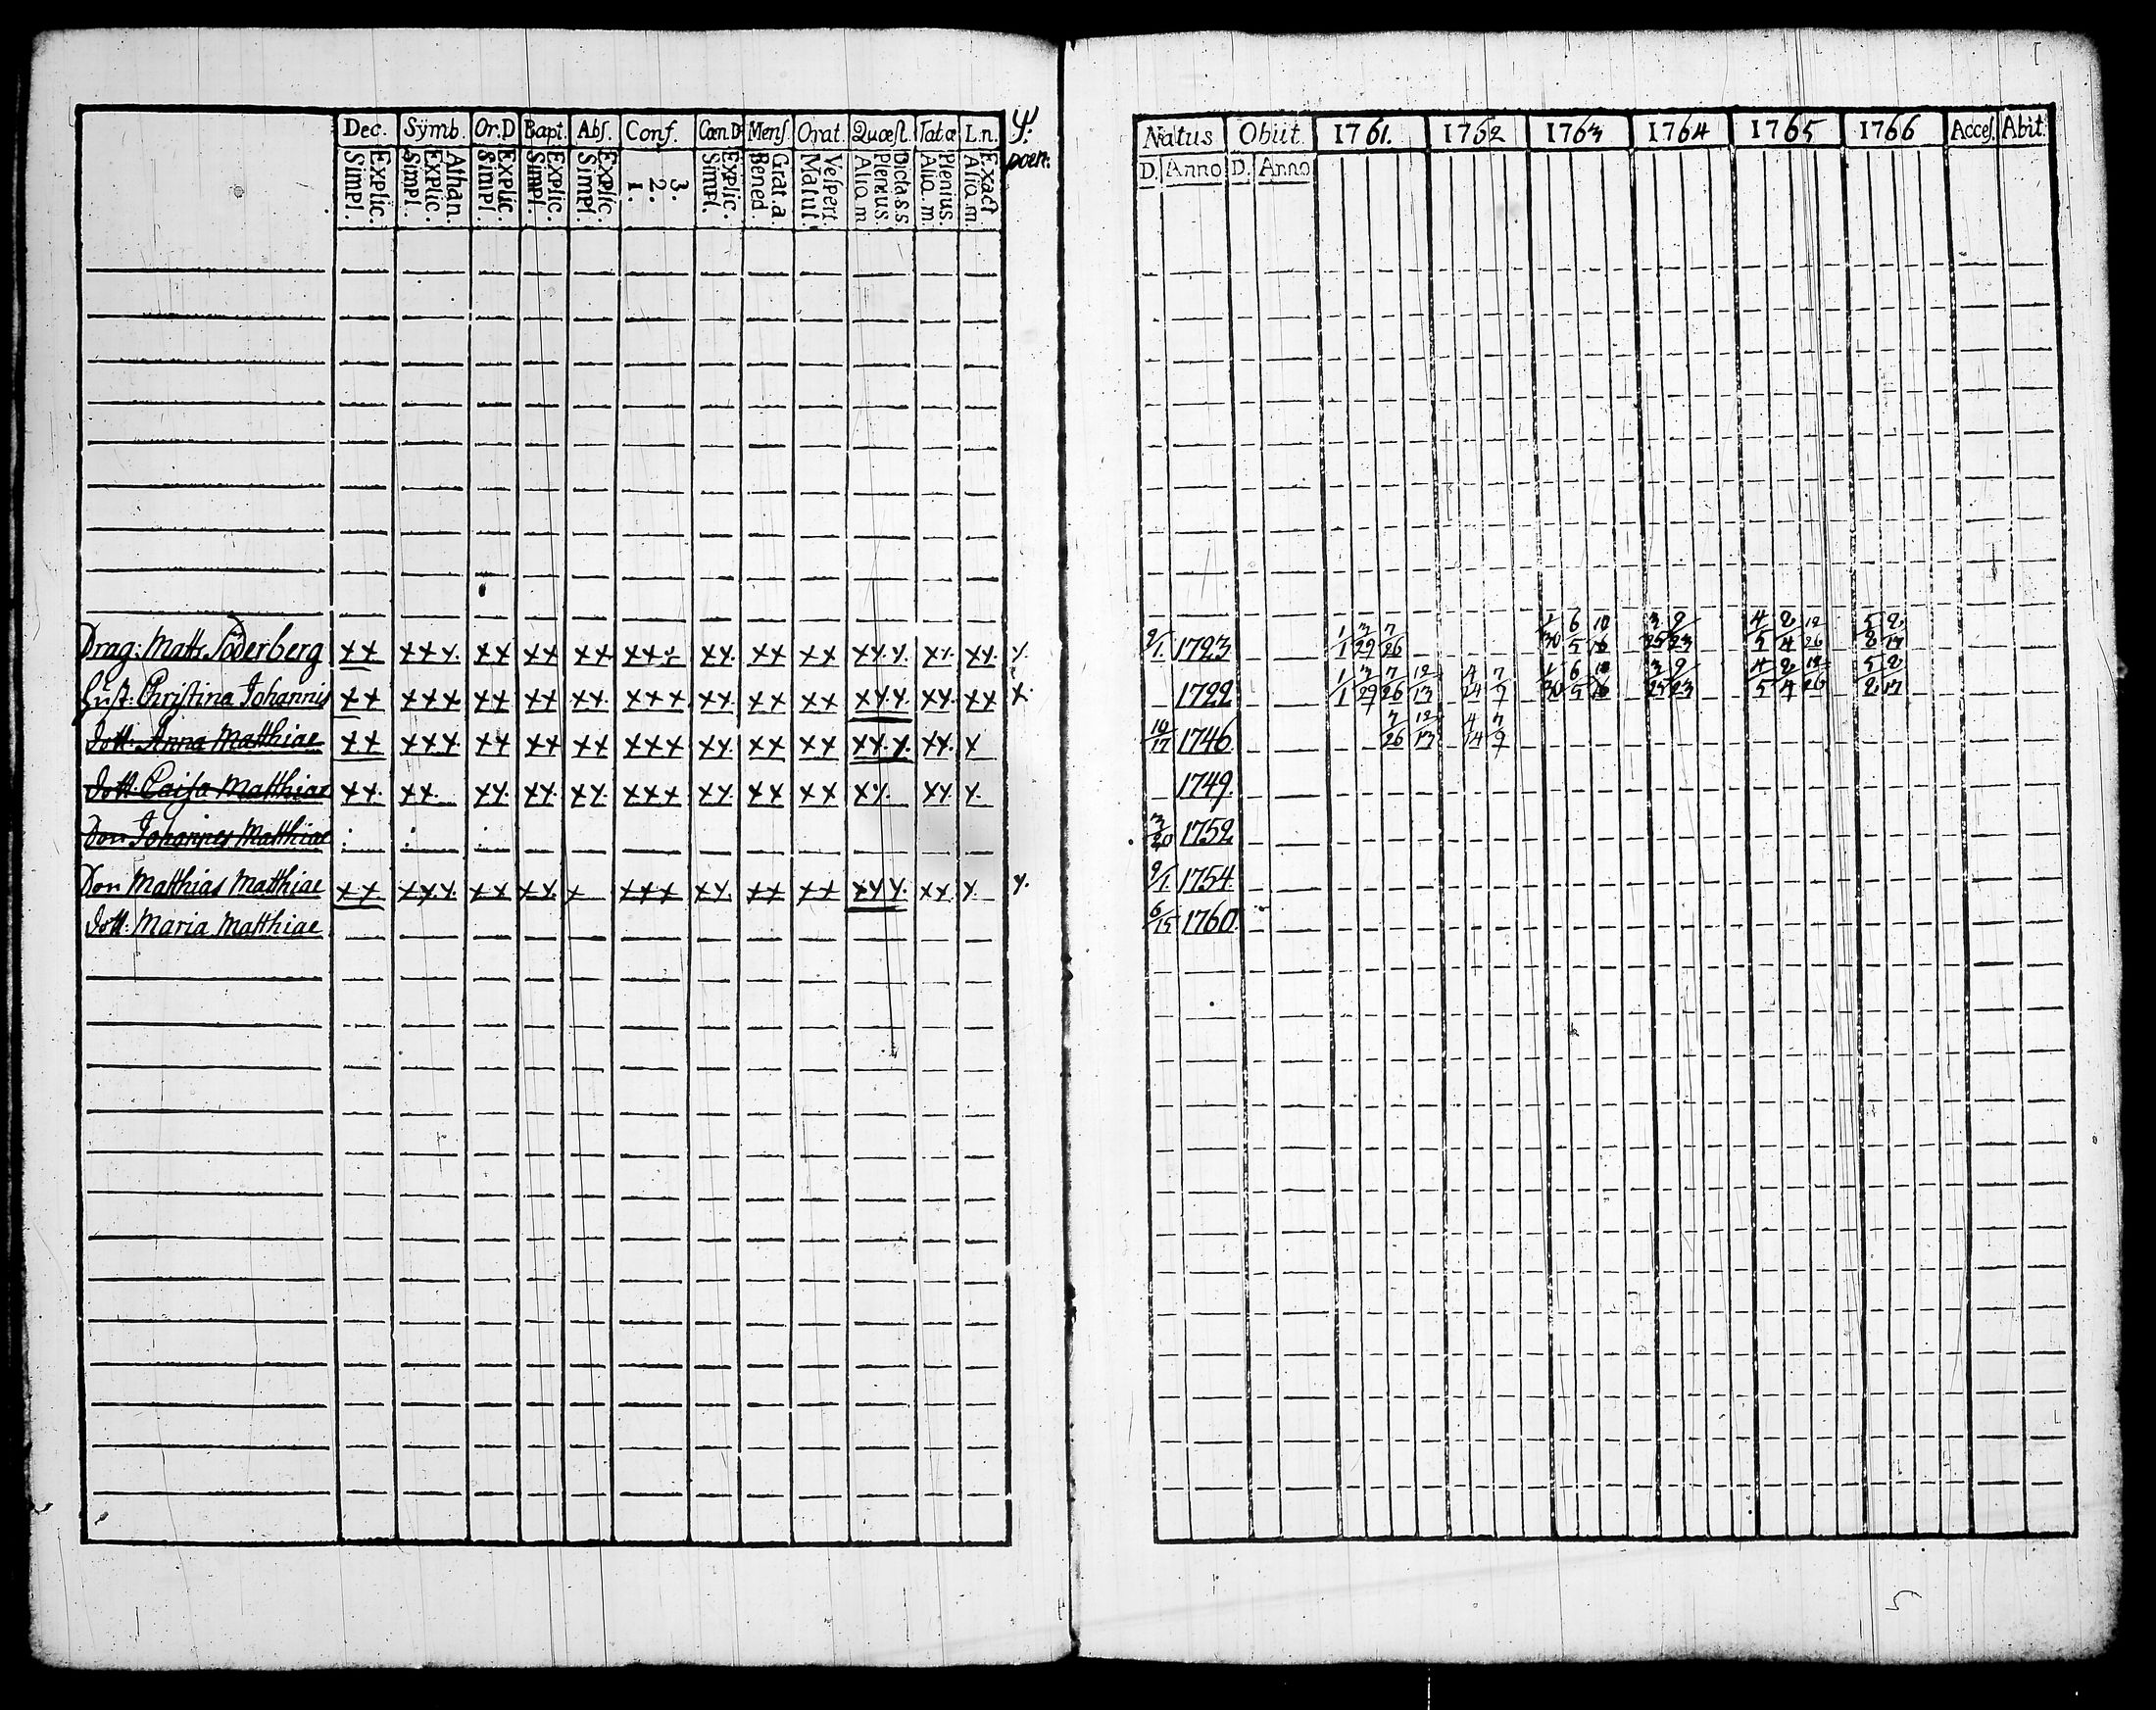 Dec. Sÿmb. Or.D Bapt. Abſ. Conf. Cœn D Menſ. Orat. Quæſt. Tatæ L.n. Ψ. poen.
Simpl. Explic. Simpl. Explic. Athan. Simpl. Explic. Simpl. Explic. Simpl. Explic. 1. 2. 3. Simpl. Explic. Bened. Grat. a. Matut. Veſpert. Alia. m. Plenius. Dicta. s.s Alia. m. Plenius. Alia. m. Exact
Drag: Matts Söderberg xx xxx xx xx xx xxx xx xx xx xxx xx xx. x
Huſt: Chriſtina Johannis xx xxx xx xx xx xxx xx xx xx xxx xx xx x
Dott. Anna Matthiae xx xxx xx xx xx xxx xx xx xx xxx xx x
Dott. Caiſa Matthiae xx xx xx xx xx xxx xx xx xx xx xx x
Son Johannes Matthiae
Son Matthias Matthiae xx xxx xx xx x xxx xx xx xx xxx xx x x
Dott: Maria Matthiae
Natus Obiit 1761. 1762 1763 1764 1765 1766 Acceſ. Abit.
D. Anno D. Anno
9/1 1723 1/1 3/29 7/26 1/30 6/5 10/16 3/25 9/23 4/5 8/4 12/26 5/8 8/17
1722 1/1 3/29 7/26 12/13 4/14 7/9 1/30 6/5 10/16 3/25 9/23 4/5 8/4 12/26 5/8 8/17
10/17 1746 7/26 12/13 4/14 7/9
1749.
3/20 1752
9/1 1754
6/15 1760.